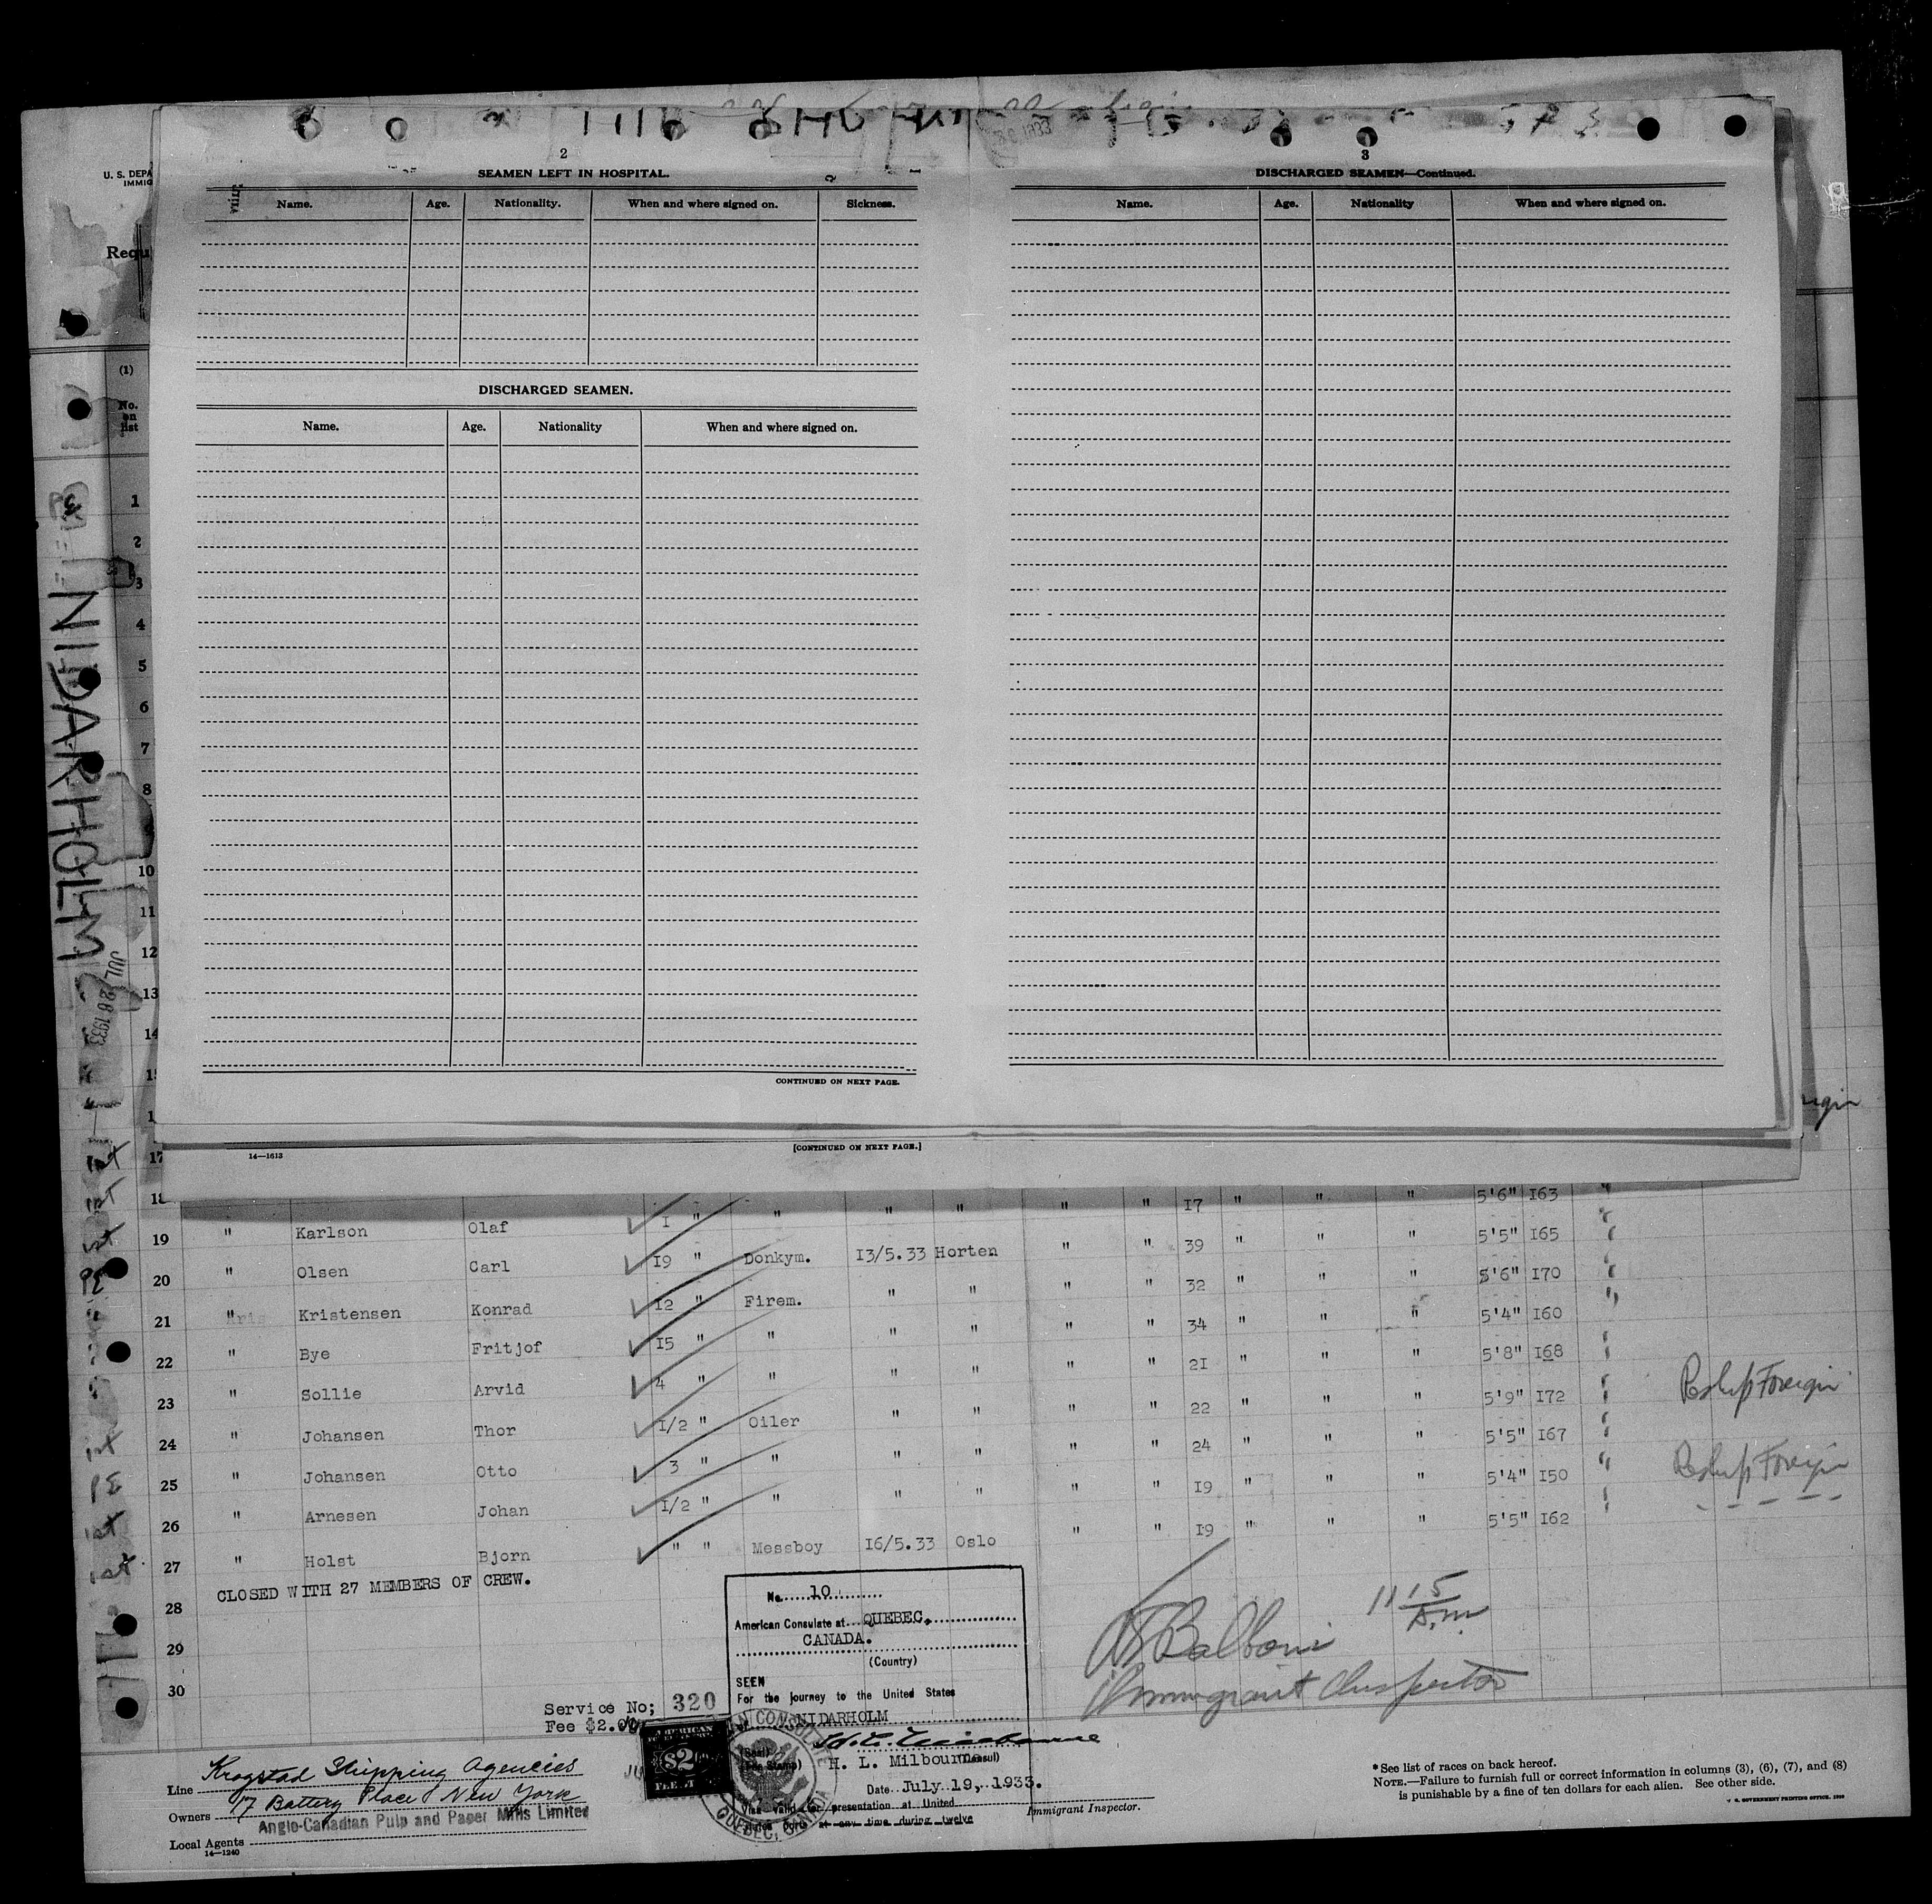 2
SEAMEN LEFT IN HOSPITAL.
Name. Age. Nationality. When and where signed on. Sickness.
DISCHARGED SEAMEN.
Name. Age. Nationality When and where signed on.
CONTINUED ON NEXT PAGE.
3
DISCHARGED SEAMEN—Continued.
Name. Age. Nationality When and where signed on.
14—1613
[CONTINUED ON NEXT PAGE.]
U. S. DEPA
IMMIG
Requ
(1)
No.
on
list
NIDARHOLM
JUL 28 1933
1
2
3
4
5
6
7
8
10
11
12
13
14
17
18 " " " " " " 17 " " " 5'6" 163
19 " Karlson Olaf 1 " " " " " " 39 " " " 5'5" 165
20 " Olsen Carl 19 " Donkym. 13/5.33 Horten " " 32 " " " 5'6" 170
21 " Kristensen Konrad 12 " Firem. " " " " 34 " " " 5'4" 160
22 " Bye Fritjof 15 " " " " " " 21 " " " 5'8" 168
23 " Sollie Arvid 4 " " " " " " 22 " " " 5'9" 172 Reship Foreign
24 " Johansen Thor 1/2 " Oiler " " " " 24 " " " 5'5" 167
25 " Johansen Otto 3 " " " " " " 19 " " " 5'4" 150 Reship Foreign
26 " Arnesen Johan 1/2 " " " " " " 19 " " " 5'5" 162
27 " Holst Bjorn " " Messboy 16/5.33 Oslo
CLOSED WITH 27 MEMBERS OF CREW.
28
29
30
No. 10
American Consulate at QUEBEC,
CANADA.
(Country)
SEEN
For the journey to the United States
NIDARHOLM
H. L. Milbourne
(Consul)
Date July 19, 1933.
Visa valid for presentation at United
States ports at any time during twelve
Service No; 320
Fee $2.00
11 15 A.m.
Balboni
Immigrant Inspector
Immigrant Inspector.
Line Krogstad Shipping Agencies
Owners 17 Battery Place New York
Local Agents Anglo-Canadian Pulp and Paper Mills Limited
14—1240
*See list of races on back hereof.
NOTE.—Failure to furnish full or correct information in columns (3), (6), (7), and (8)
is punishable by a fine of ten dollars for each alien. See other side.